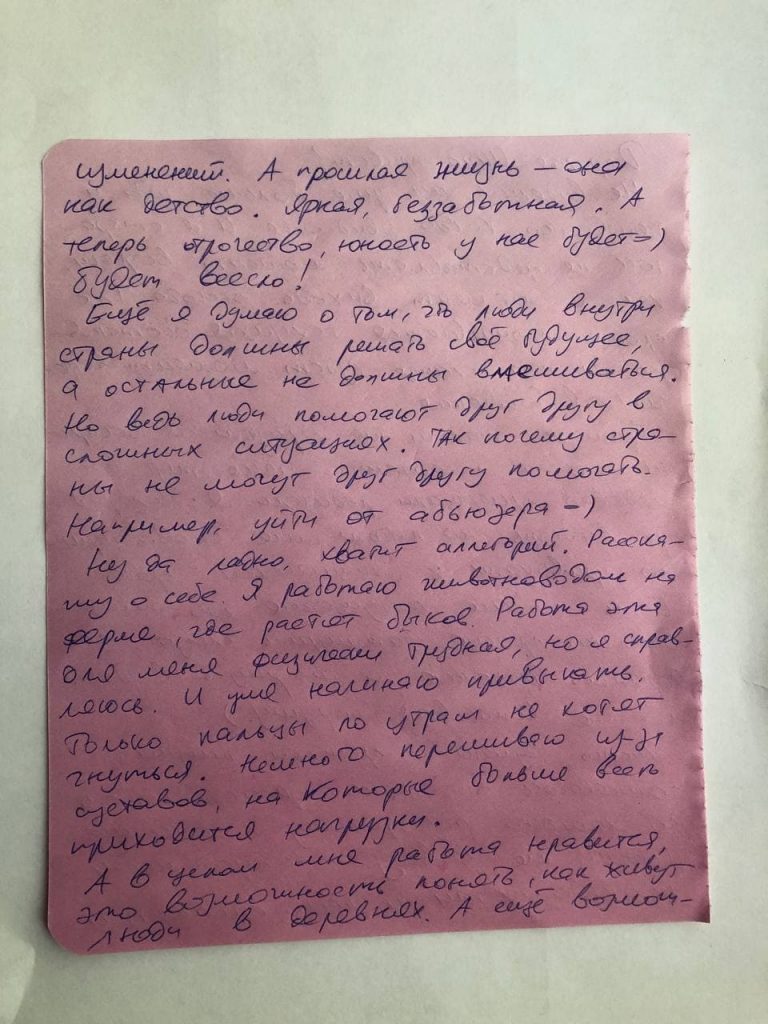 изменений. А прошлая жизнь – она
как детство. Яркая, беззаботная. А
теперь отрочество, юность у нас будет=)
будет весело!
Ещё я думаю о том, что люди внутри
страны должны решать своё будущее,
а остальные не должны вмешиваться.
Но ведь люди помогают друг другу в
сложных ситуациях. Так почему стра-
ны не могут друг другу помогать.
Например, уйти от абьюзера =)
Ну да ладно, хватит аллегорий. Расска-
жу о себе. Я работаю животноводом на
ферме, где растят быков. Работа эта
для меня физически трудная, но я справ-
ляюсь. И уже начинаю привыкать.
Только пальцы по утрам не хотят
гнуться. Немного переживаю из-за
суставов, на которые больше всего
приходится нагрузки.
А в целом мне работа нравится,
это возможность понять, как живут
люди в деревнях. А ещё возмож-